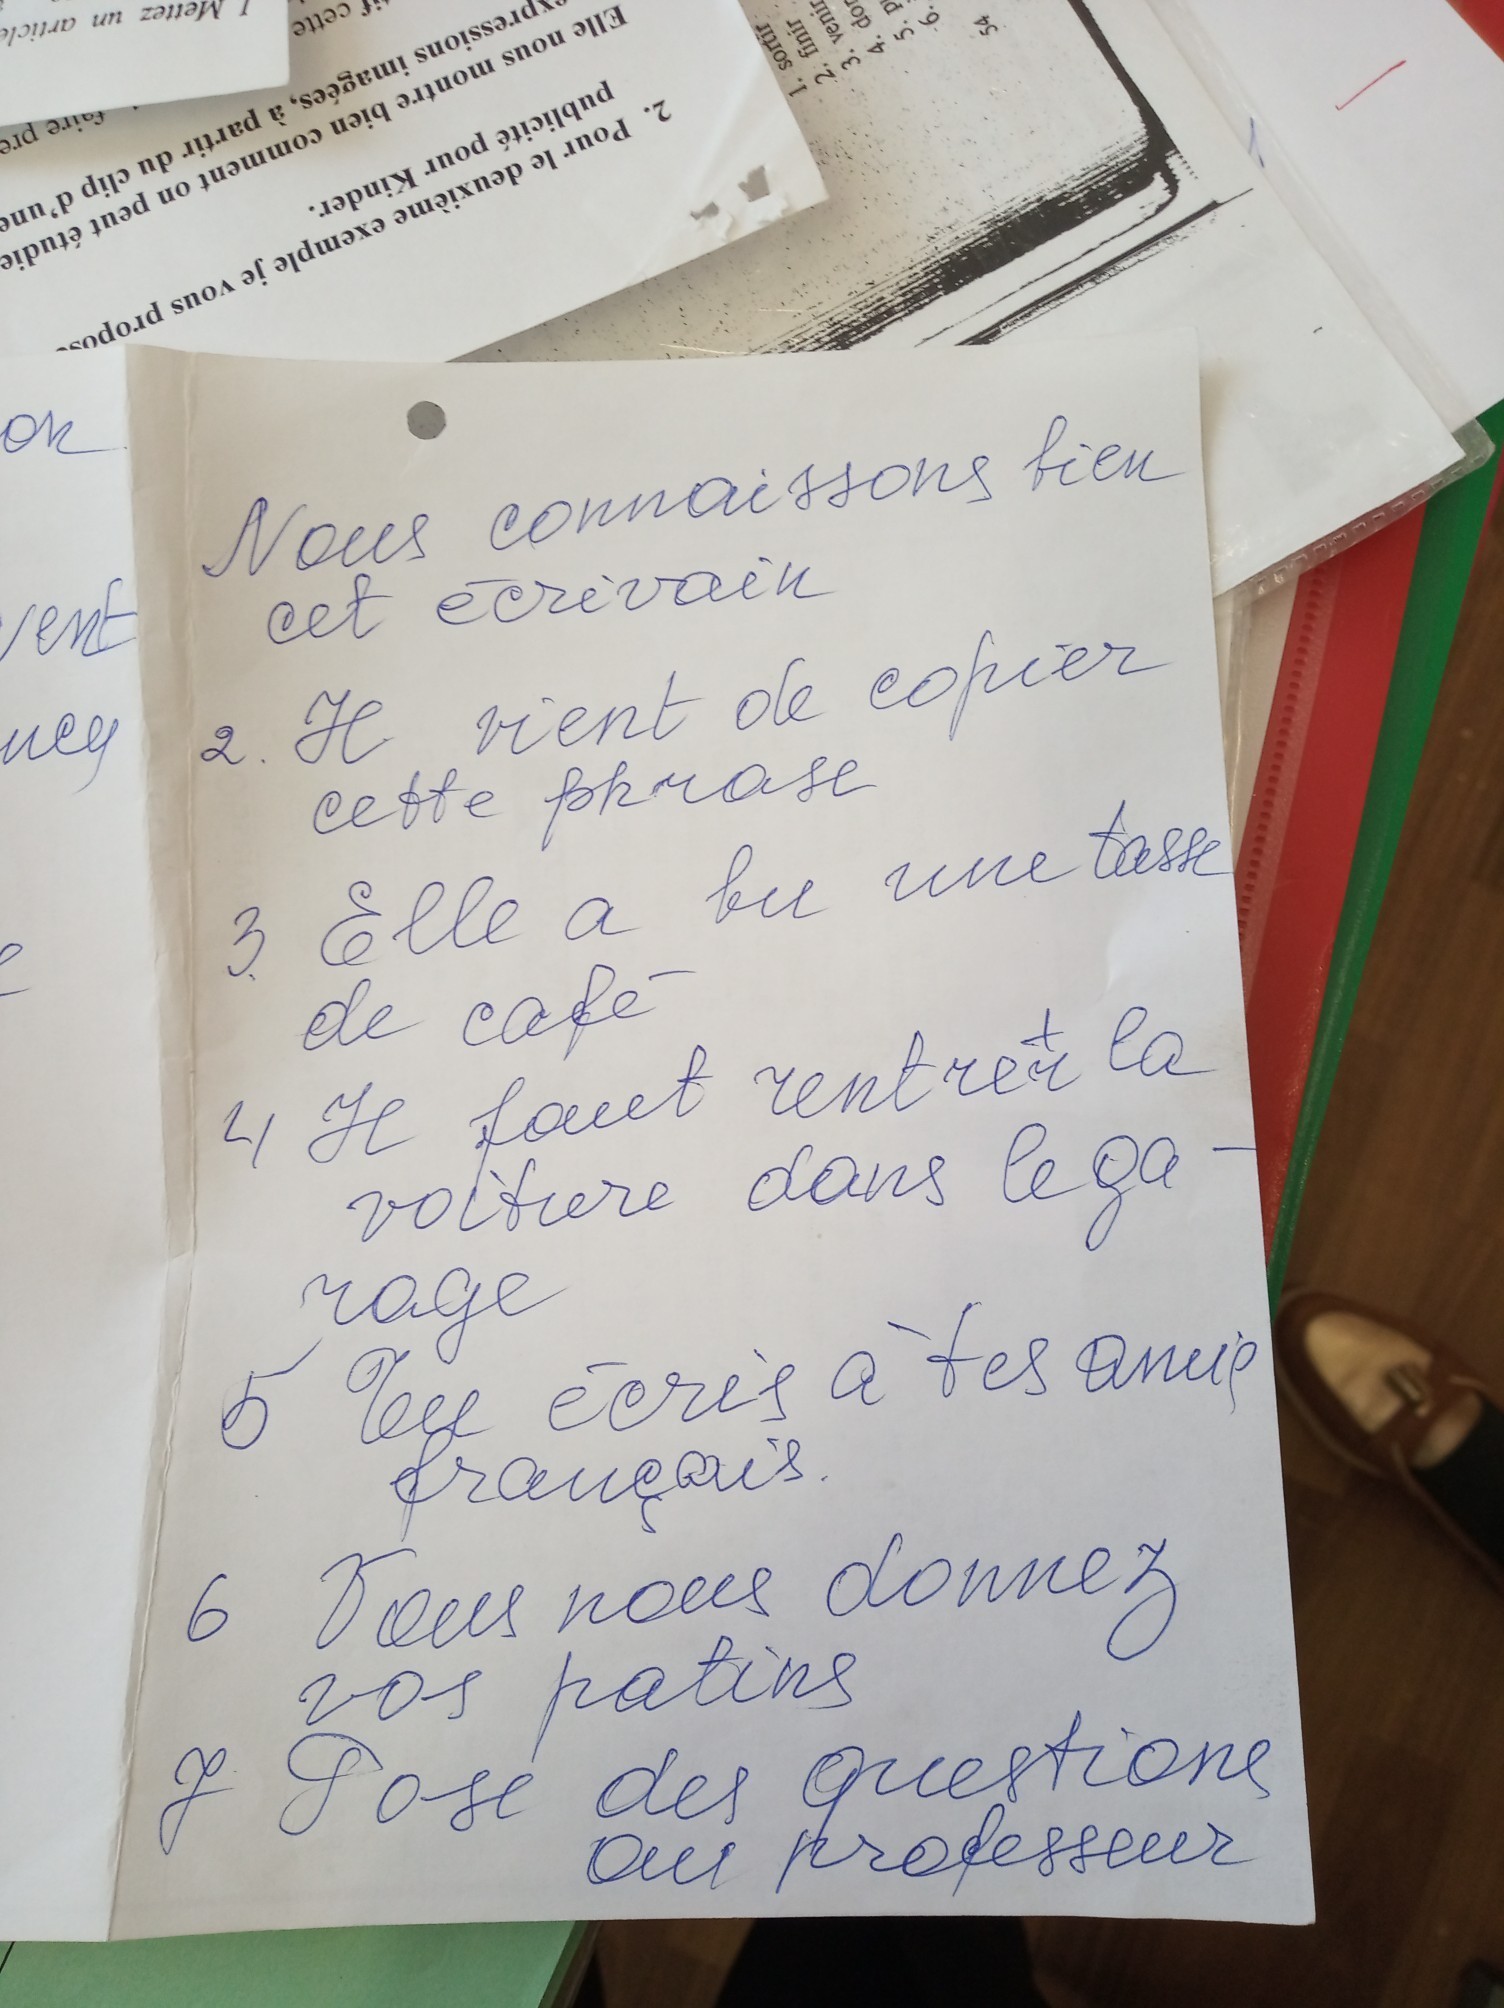 1. Mettez un article
tif cette
faire pre
expressions imagées, à partir du clip d'une
Elle nous montre bien comment on peut étudie
publicité pour Kinder.
2. Pour le deuxième exemple je vous propose
1. sortir
2. finir
3. venir
4. dor
5. p
6.
54
on
vent
ucy
e
Nous connaissons bien
cet écrivain
2. Il vient de copier
cette phrase
3. Elle a bu une tasse
de café
4 Il faut rentrer la
voiture dans le ga-
rage
5 Tu écris à tes amis
français.
6 Vous nous donnez
vos patins
7 Pose des questions
au professeur